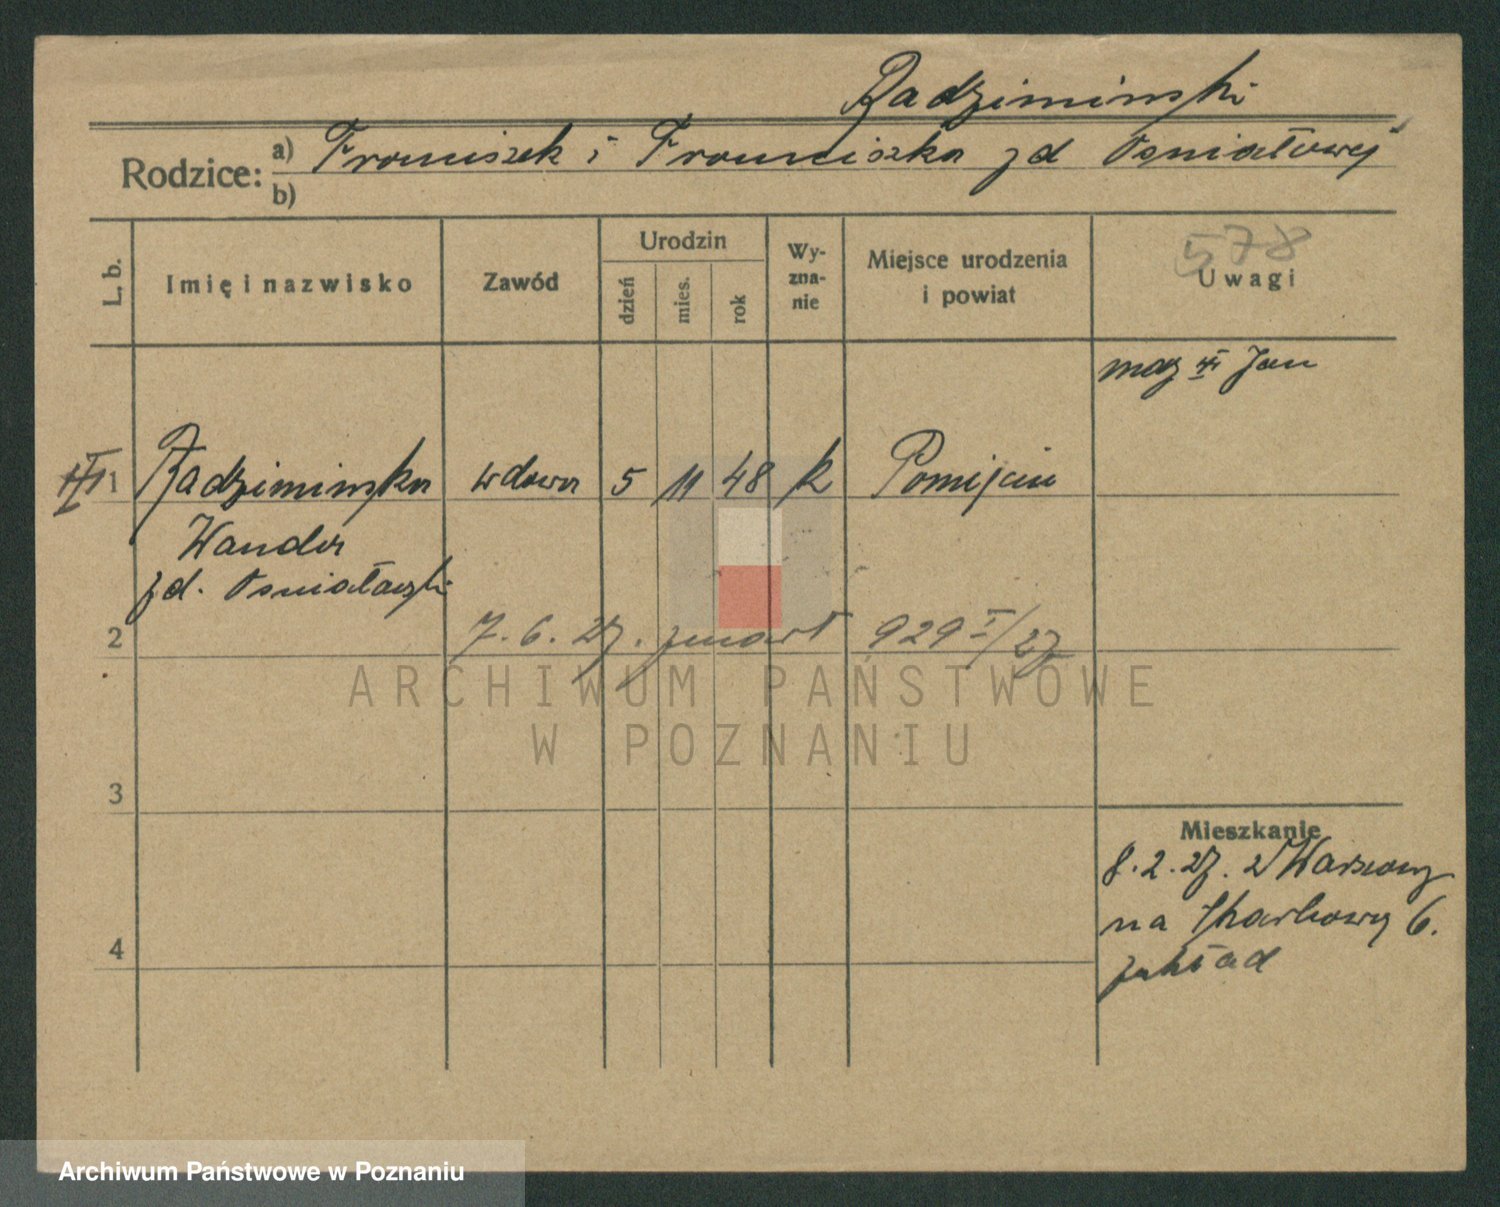 Radzimiński
Rodzice: a) Franciszek i Franciszka zd Osniałowej
b)
L. b. Imię i nazwisko Zawód Urodzin dzień mies. rok Wy-zna-nie Miejsce urodzenia i powiat Uwagi
578
mąż Jan
1 Radzimińska wdowa 5 11 48 k
Wanda
zd.
2 7. 6. 27. zmarł 929 I/27
ARCHIWUM PAŃSTWOWE
W POZNANIU
3
Mieszkanie
8. 2. 27. z Warszawy
na Skarbowy 6.
zakład
4
Archiwum Państwowe w Poznaniu